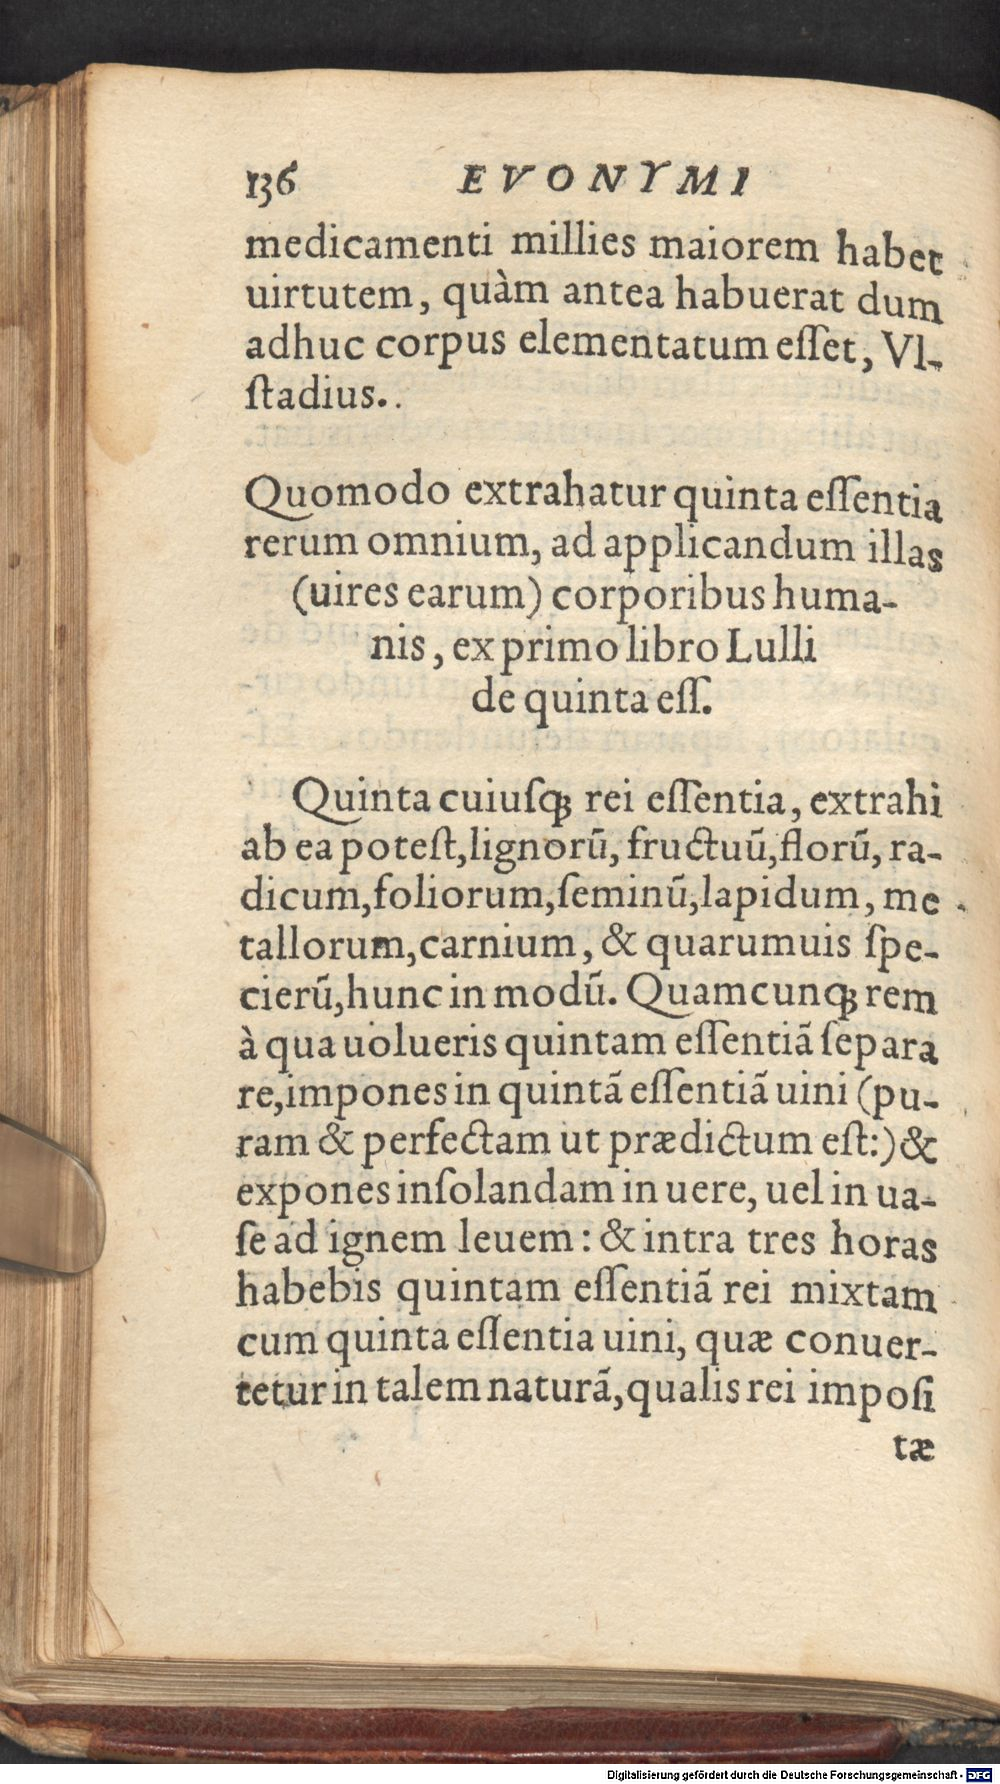 136 EVONYMI
medicamenti millies maiorem habet
uirtutem, quàm antea habuerat dum
adhuc corpus elementatum eſſet, Vl-
ſtadius..
Quomodo extrahatur quinta eſſentia
rerum omnium, ad applicandum illas
(uires earum) corporibus huma-
nis, ex primo libro Lulli
de quinta eſſ.
Quinta cuiuſqꝫ rei eſſentia, extrahi
ab ea poteſt, lignorũ, fructuũ, florũ, ra-
dicum, foliorum, ſeminũ, lapidum, me
tallorum, carnium, & quarumuis ſpe-
cierũ, hunc in modũ. Quamcunqꝫ rem
à qua uolueris quintam eſſentiã ſepara
re, impones in quintã eſſentiã uini (pu-
ram & perfectam ut prædictum eſt:) &
expones inſolandam in uere, uel in ua-
ſe ad ignem leuem: & intra tres horas
habebis quintam eſſentiã rei mixtam
cum quinta eſſentia uini, quæ conuer-
tetur in talem naturã, qualis rei impoſi
tæ
Digitalisierung gefördert durch die Deutsche Forschungsgemeinschaft - DFG